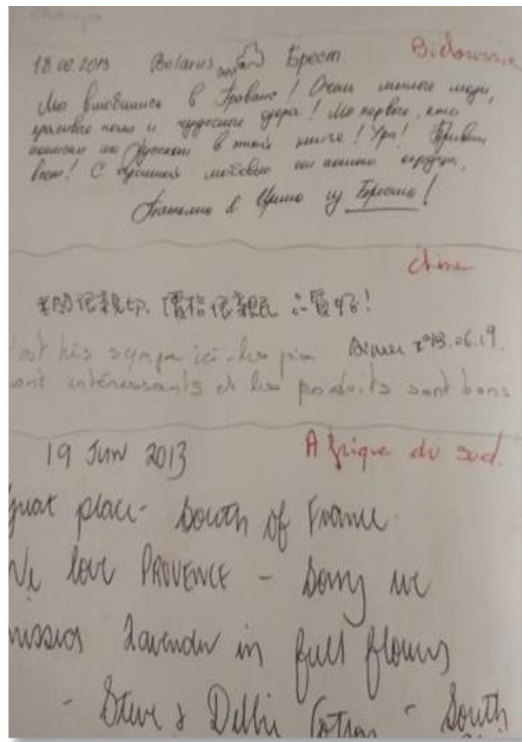 18.06.2013 Belarus Брест. Biélorussie
Мы влюбились в Прованс! Очень милые люди,
красивые поля и чудесные озёра! Мы первые, кто
написал на Русском в этой книге! Ура! Привет
всем! С огромной любовью от нашего сердца,
Анатолий и Ирина из Бреста!
Chine
老闆很親切, 價格很親民 品質好!
c'est très sympa ici - les prix 2013.06.19.
sont intéressants et les produits sont bons
19 JUN 2013 Afrique du sud.
Great place - South of France.
We love PROVENCE - Sorry we
missed Lavender in full flowers
- Steve & Debbie - South